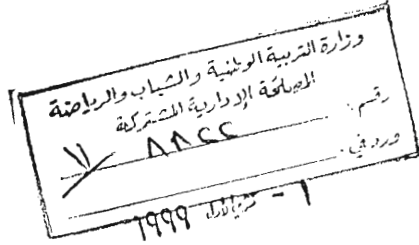 وزارة التربية الوطنية والشباب والرياضة
المصلحة الإدارية المشتركة
رقم : ٨٨٢٢ / ١١
ورد في :
١ - تشرين الأول ١٩٩٩